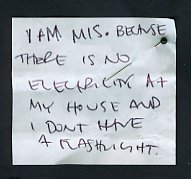 I AM MIS. BECAUSE
THERE IS NO
ELECTRICITY AT
MY HOUSE AND
I DONT HAVE
A FLASHLIGHT.